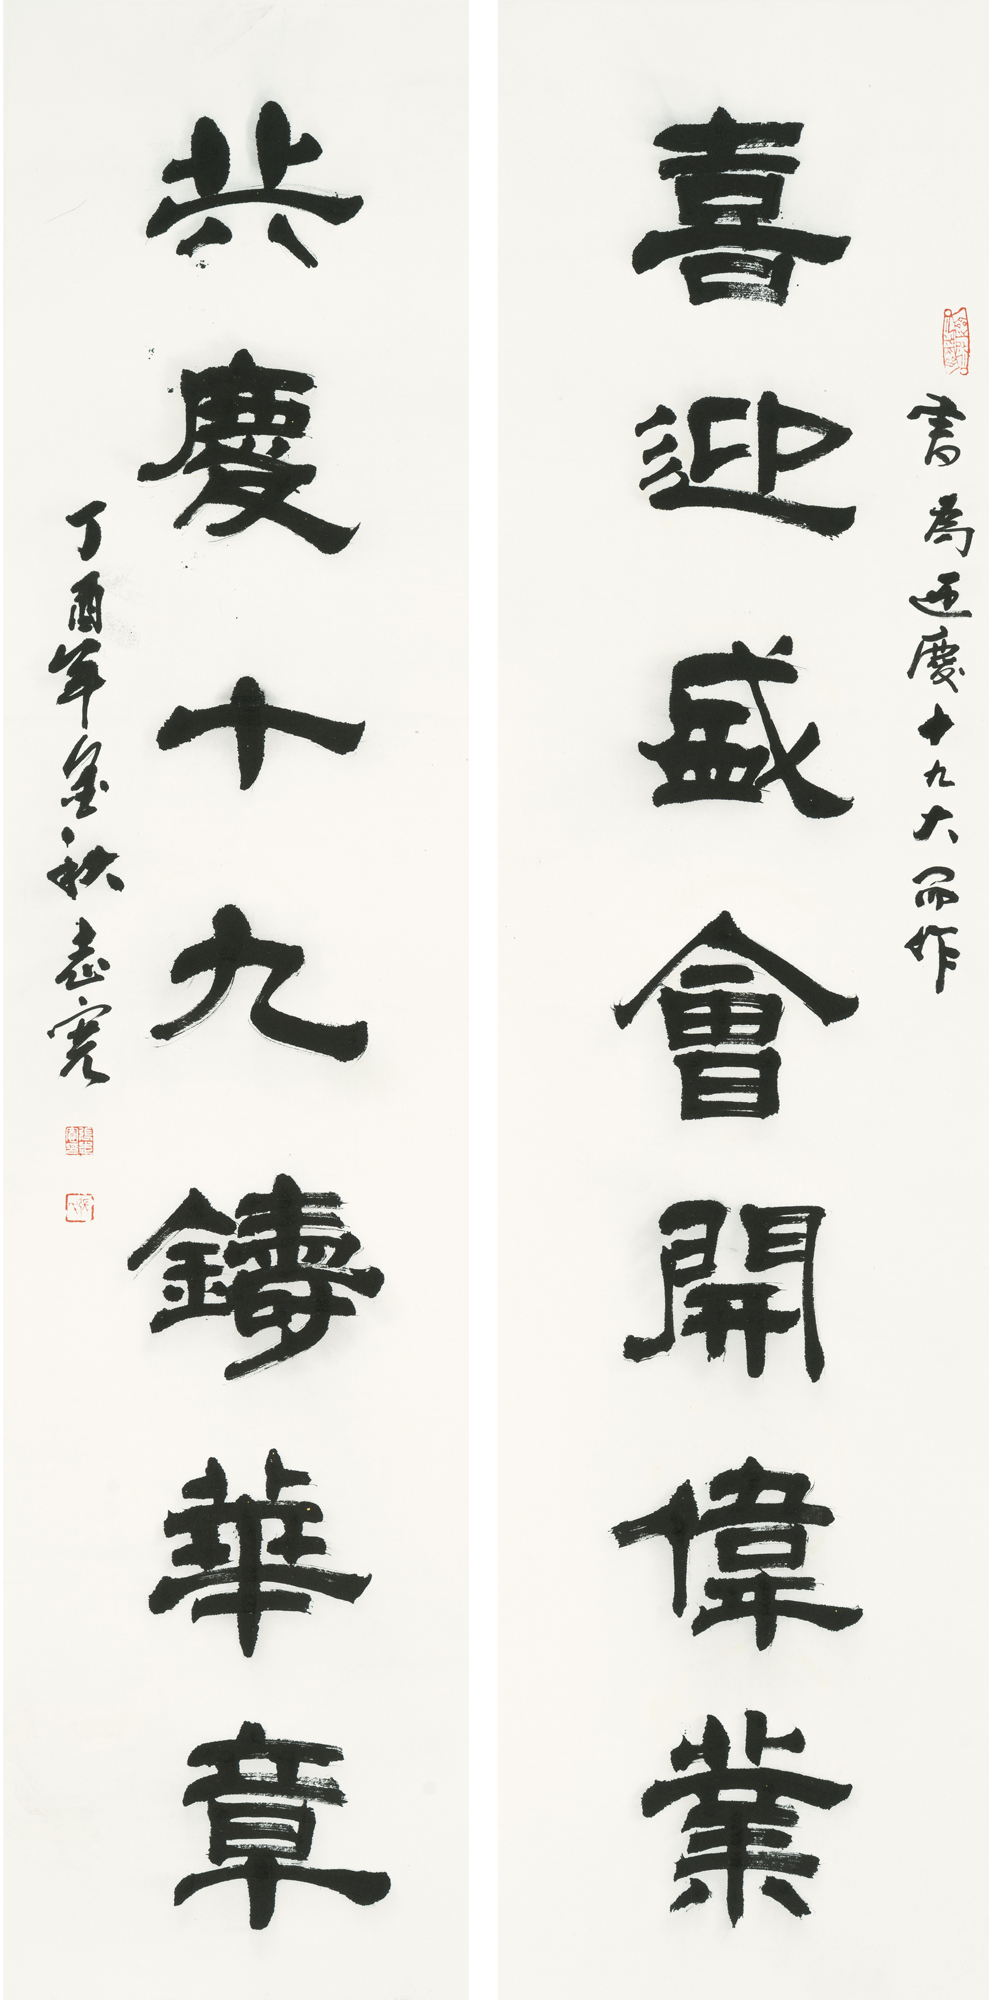 書為迎慶十九大而作
喜迎盛會開偉業
共慶十九鑄華章
丁酉年金秋志寬